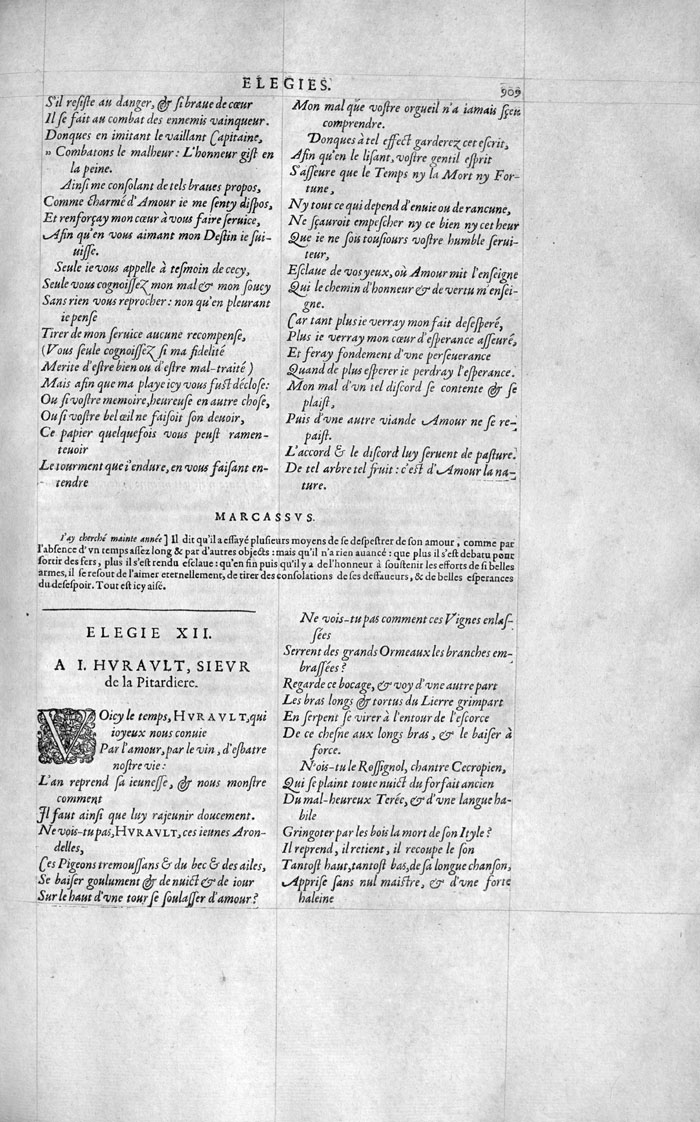 ELEGIES.
909
S'il resiste au danger, & si braue de cœur
Il se fait au combat des ennemis vainqueur.
Donques en imitant le vaillant Capitaine,
» Combatons le malheur : L'honneur gist en
la peine.
Ainsi me consolant de tels braues propos,
Comme charmé d'Amour ie me senty dispos,
Et renforçay mon cœur à vous faire seruice,
Afin qu'en vous aimant mon Destin ie sui-
uisse.
Seule ie vous appelle à tesmoin de cecy,
Seule vous cognoissez mon mal & mon soucy
Sans rien vous reprocher : non qu'en pleurant
ie pense
Tirer de mon seruice aucune recompense,
(Vous seule cognoissez si ma fidelité
Merite d'estre bien ou d'estre mal-traité)
Mais afin que ma playe icy vous fust déclose:
Ou si vostre memoire, heureuse en autre chose,
Ou si vostre bel œil ne faisoit son deuoir,
Ce papier quelquefois vous peust ramen-
teuoir
Le tourment que i'endure, en vous faisant en-
tendre
Mon mal que vostre orgueil n'a iamais sçeu
comprendre.
Donques à tel effect garderez cet escrit,
Afin qu'en le lisant, vostre gentil esprit
S'asseure que le Temps ny la Mort ny For-
tune,
Ny tout ce qui depend d'enuie ou de rancune,
Ne sçauroit empescher ny ce bien ny cet heur
Que ie ne sois tousiours vostre humble serui-
teur,
Esclaue de vos yeux, où Amour mit l'enseigne
Qui le chemin d'honneur & de vertu m'ensei-
gne.
Car tant plus ie verray mon fait desesperé,
Plus ie verray mon cœur d'esperance asseuré,
Et feray fondement d'vne perseuerance
Quand de plus esperer ie perdray l'esperance.
Mon mal d'vn tel discord se contente & se
plaist,
Puis d'vne autre viande Amour ne se re-
paist.
L'accord & le discord luy seruent de pasture.
De tel arbre tel fruit : c'est d'Amour la na-
ture.
MARCASSVS.
I'ay cherché mainte année] Il dit qu'il a essayé plusieurs moyens de se despestrer de son amour, comme par
l'absence d'vn temps assez long & par d'autres obiects : mais qu'il n'a rien auancé : que plus il s'est debatu pour
sortir des fers, plus il s'est rendu esclaue: qu'en fin puis qu'il y a de l'honneur à soustenir les efforts de si belles
armes, il se resout de l'aimer eternellement, de tirer des consolations de ses desfaueurs, & de belles esperances
du desespoir. Tout est icy aisé.
ELEGIE XII.
A I. HVRAVLT, SIEVR
de la Pitardiere.
VOicy le temps, HVRAVLT, qui
ioyeux nous conuie
Par l'amour, par le vin, d'esbatre
nostre vie :
L'an reprend sa ieunesse, & nous monstre
comment
Il faut ainsi que luy rajeunir doucement.
Ne vois-tu pas, HVRAVLT, ces ieunes Aron-
delles,
Ces Pigeons tremoussans & du bec & des ailes,
Se baiser goulument & de nuict & de iour
Sur le haut d'vne tour se soulasser d'amour?
Ne vois-tu pas comment ces Vignes enlas-
sées
Serrent des grands Ormeaux les branches em-
brassées ?
Regarde ce bocage, & voy d'vne autre part
Les bras longs & tortus du Lierre grimpart
En serpent se virer à l'entour de l'escorce
De ce chesne aux longs bras, & le baiser à
force.
N'ois-tu le Rossignol, chantre Cecropien,
Qui se plaint toute nuict du forfait ancien
Du mal-heureux Terée, & d'vne langue ha-
bile
Gringoter par les bois la mort de son Ityle ?
Il reprend, il retient, il recoupe le son
Tantost haut, tantost bas, de sa longue chanson,
Apprise sans nul maistre, & d'vne forte
haleine